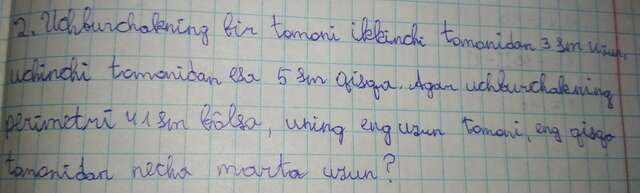 2. Uchburchakning bir tomoni ikkinchi tomonidan 3 sm uzun,
uchinchi tomonidan esa 5 sm qisqa. Agar uchburchakning
perimetri 41 sm bólsa, uning eng uzun tomoni, eng qisqa
tomonidan necha marta uzun?